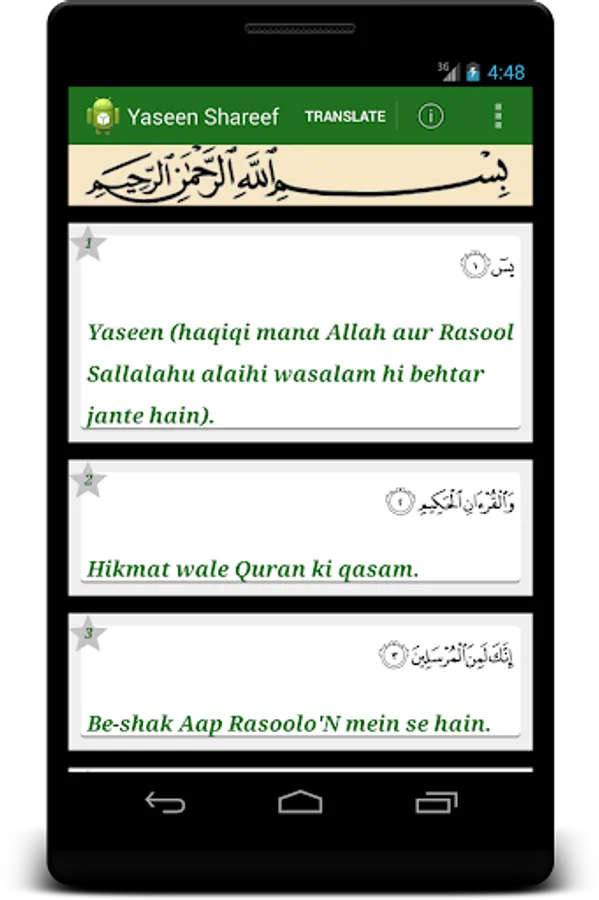 3G 4:48
Yaseen Shareef TRANSLATE
بِسْمِ ٱللَّهِ ٱلرَّحْمَٰنِ ٱلرَّحِيمِ
1
يسٓ ١
Yaseen (haqiqi mana Allah aur Rasool
Sallalahu alaihi wasalam hi behtar
jante hain).
2
وَٱلْقُرْءَانِ ٱلْحَكِيمِ ٢
Hikmat wale Quran ki qasam.
3
إِنَّكَ لَمِنَ ٱلْمُرْسَلِينَ ٣
Be-shak Aap Rasoolo'N mein se hain.